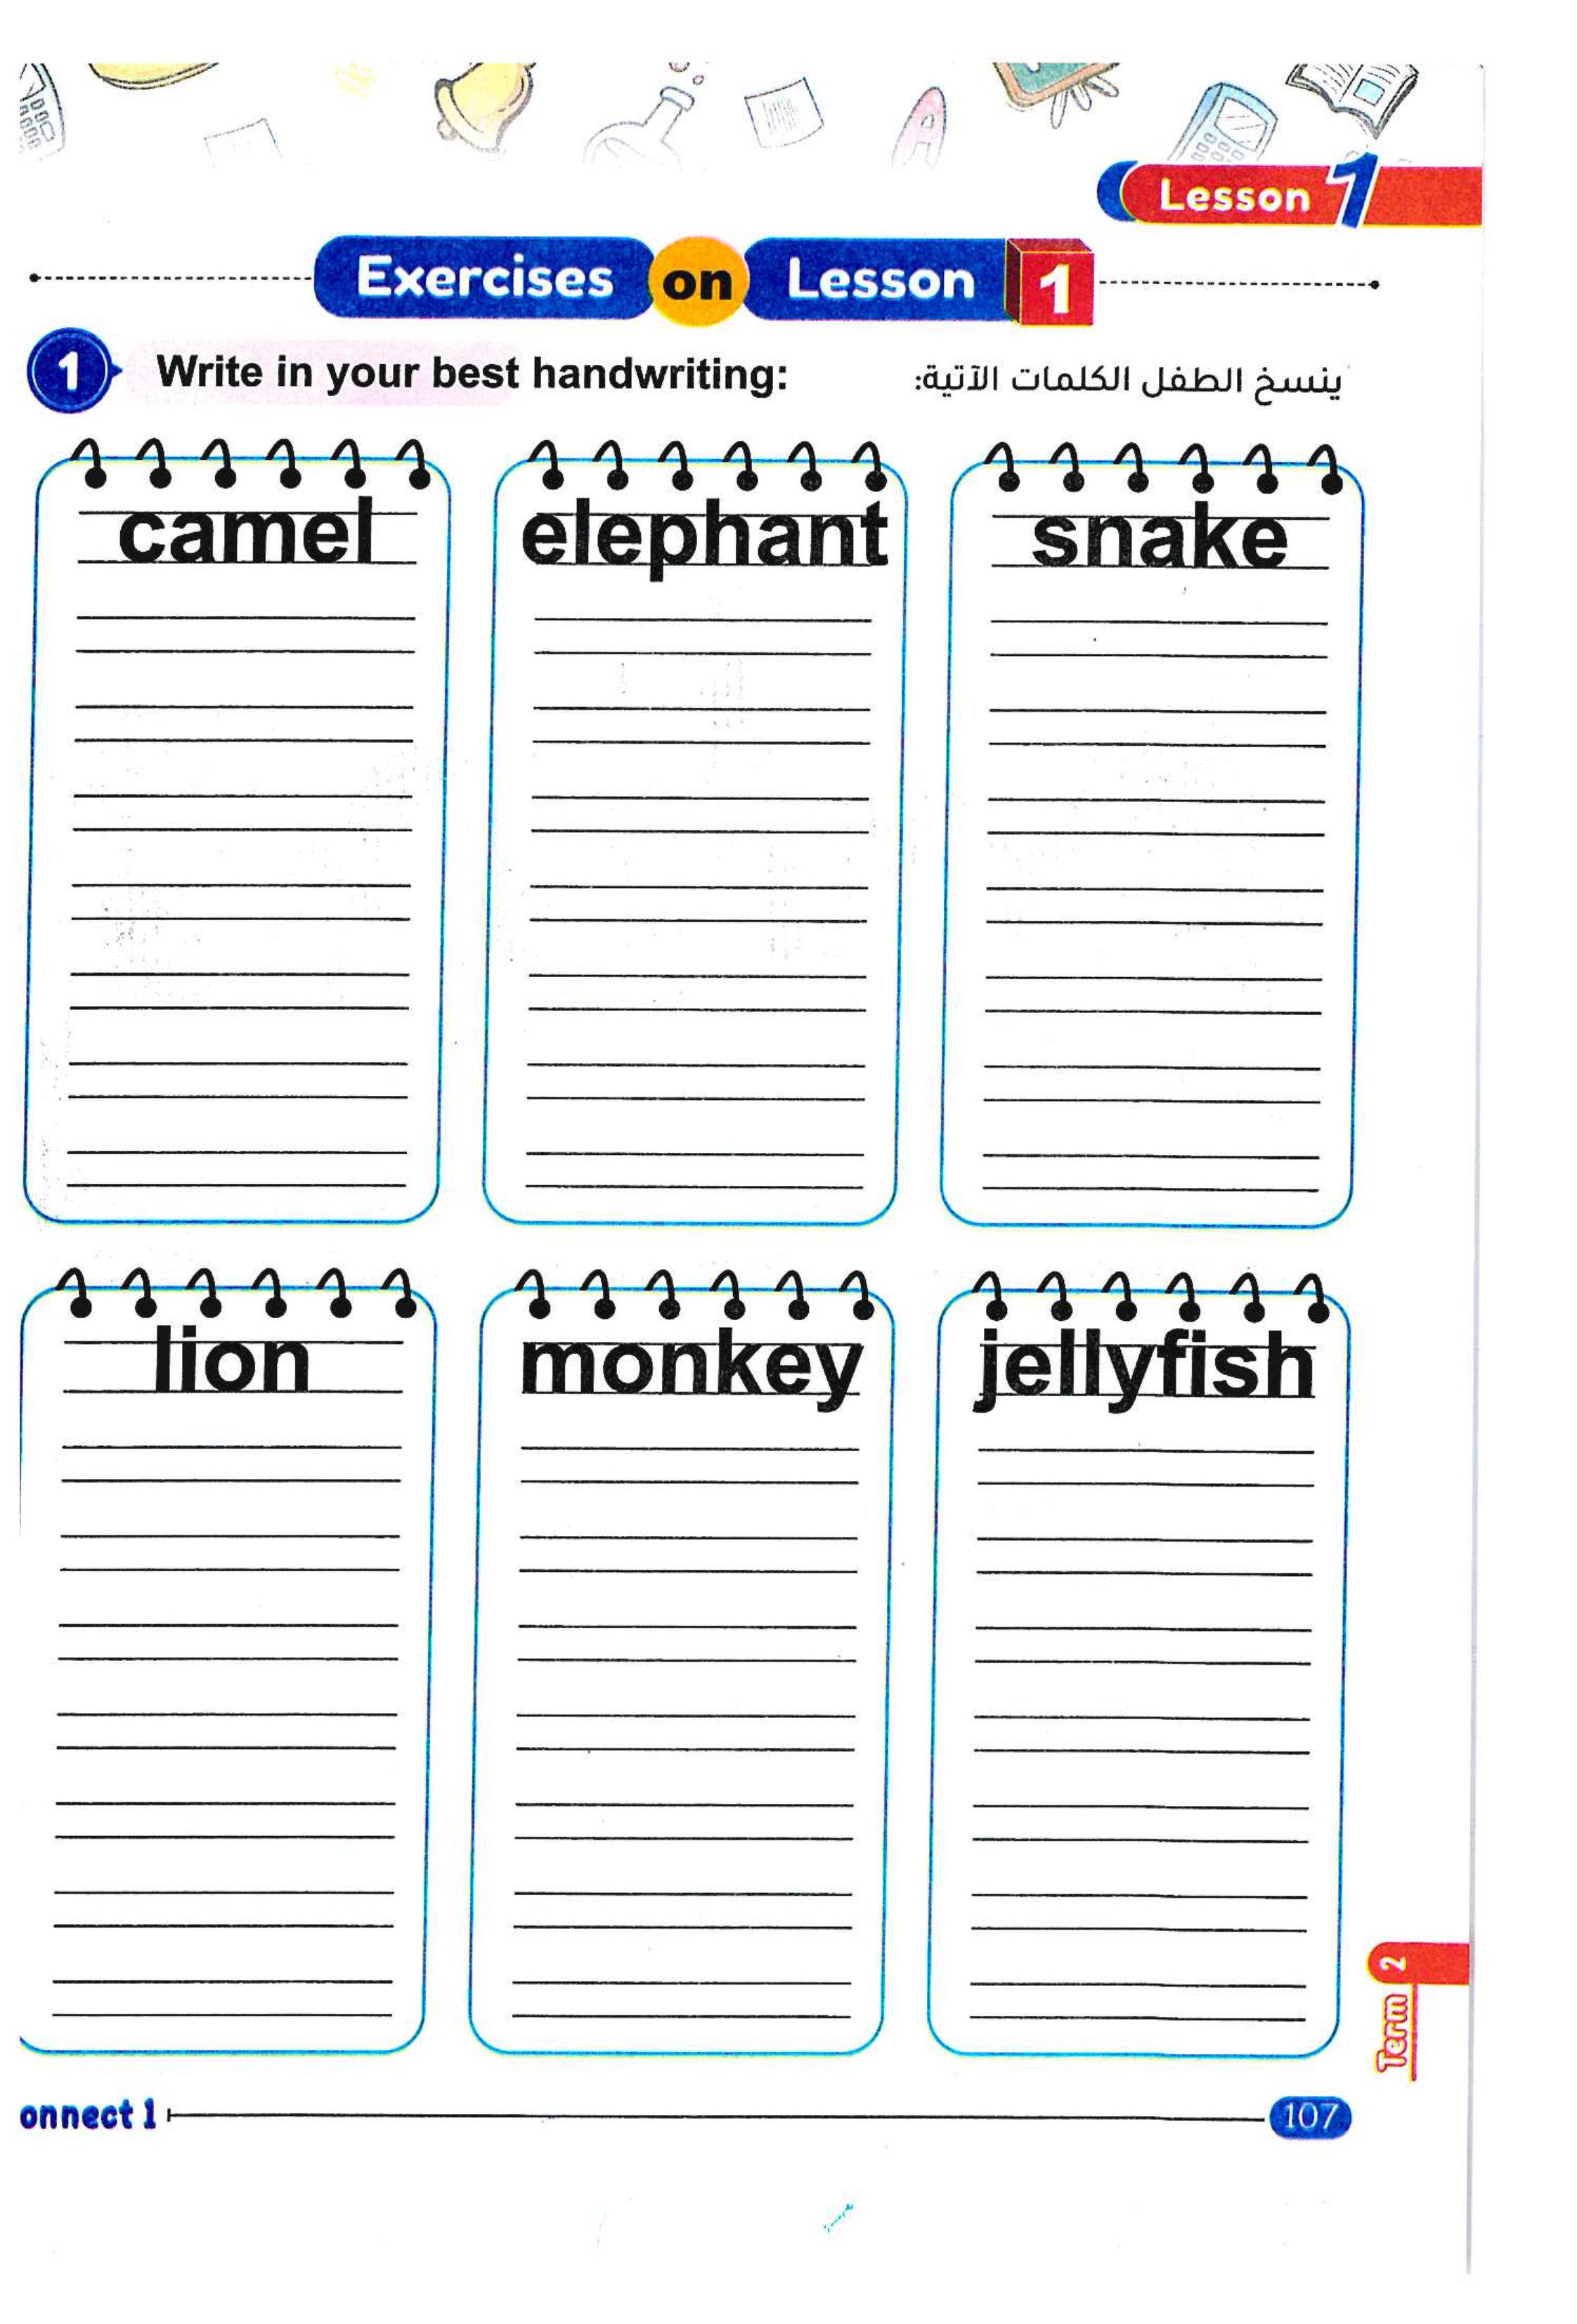 Lesson 1
Exercises on Lesson 1
1 Write in your best handwriting: ينسخ الطفل الكلمات الآتية:
camel elephant snake
lion monkey jellyfish
Term 2
onnect 1 107